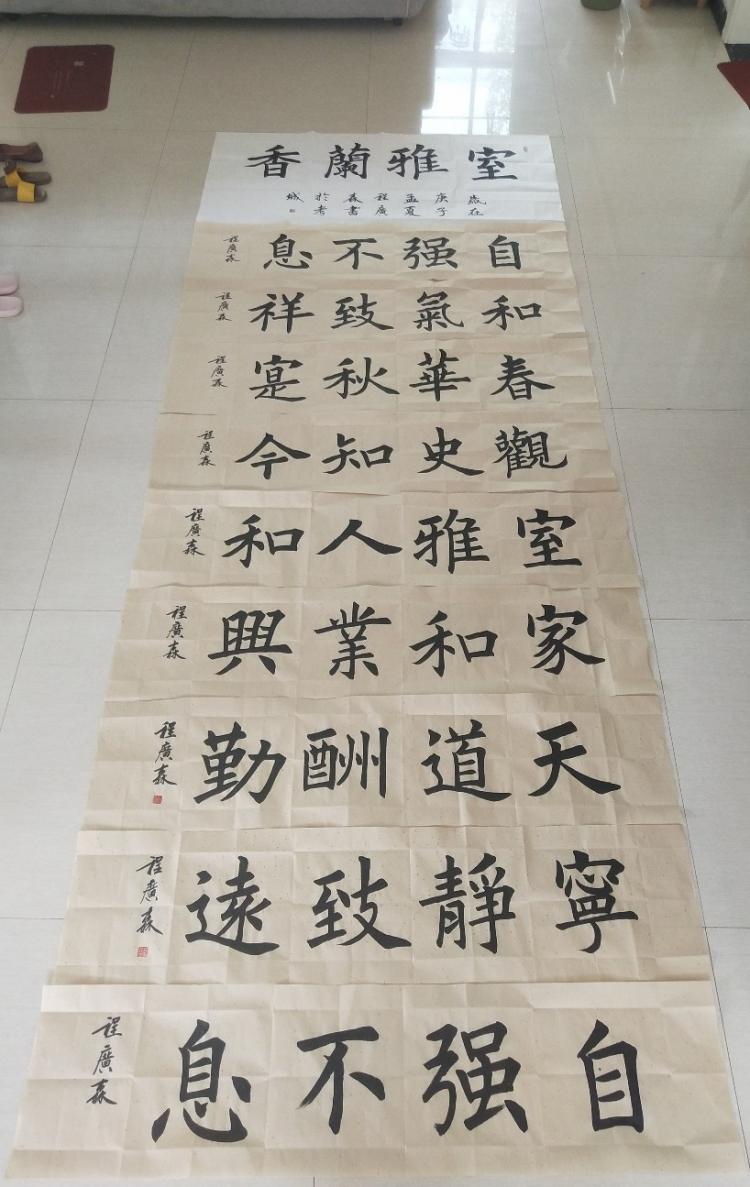 室雅蘭香
歲在庚子孟夏程廣森書於考城
自强不息
程廣森
和氣致祥
程廣森
春華秋寔
程廣森
觀史知今
程廣森
室雅人和
程廣森
家和業興
程廣森
天道酬勤
程廣森
寧靜致遠
程廣森
自强不息
程廣森